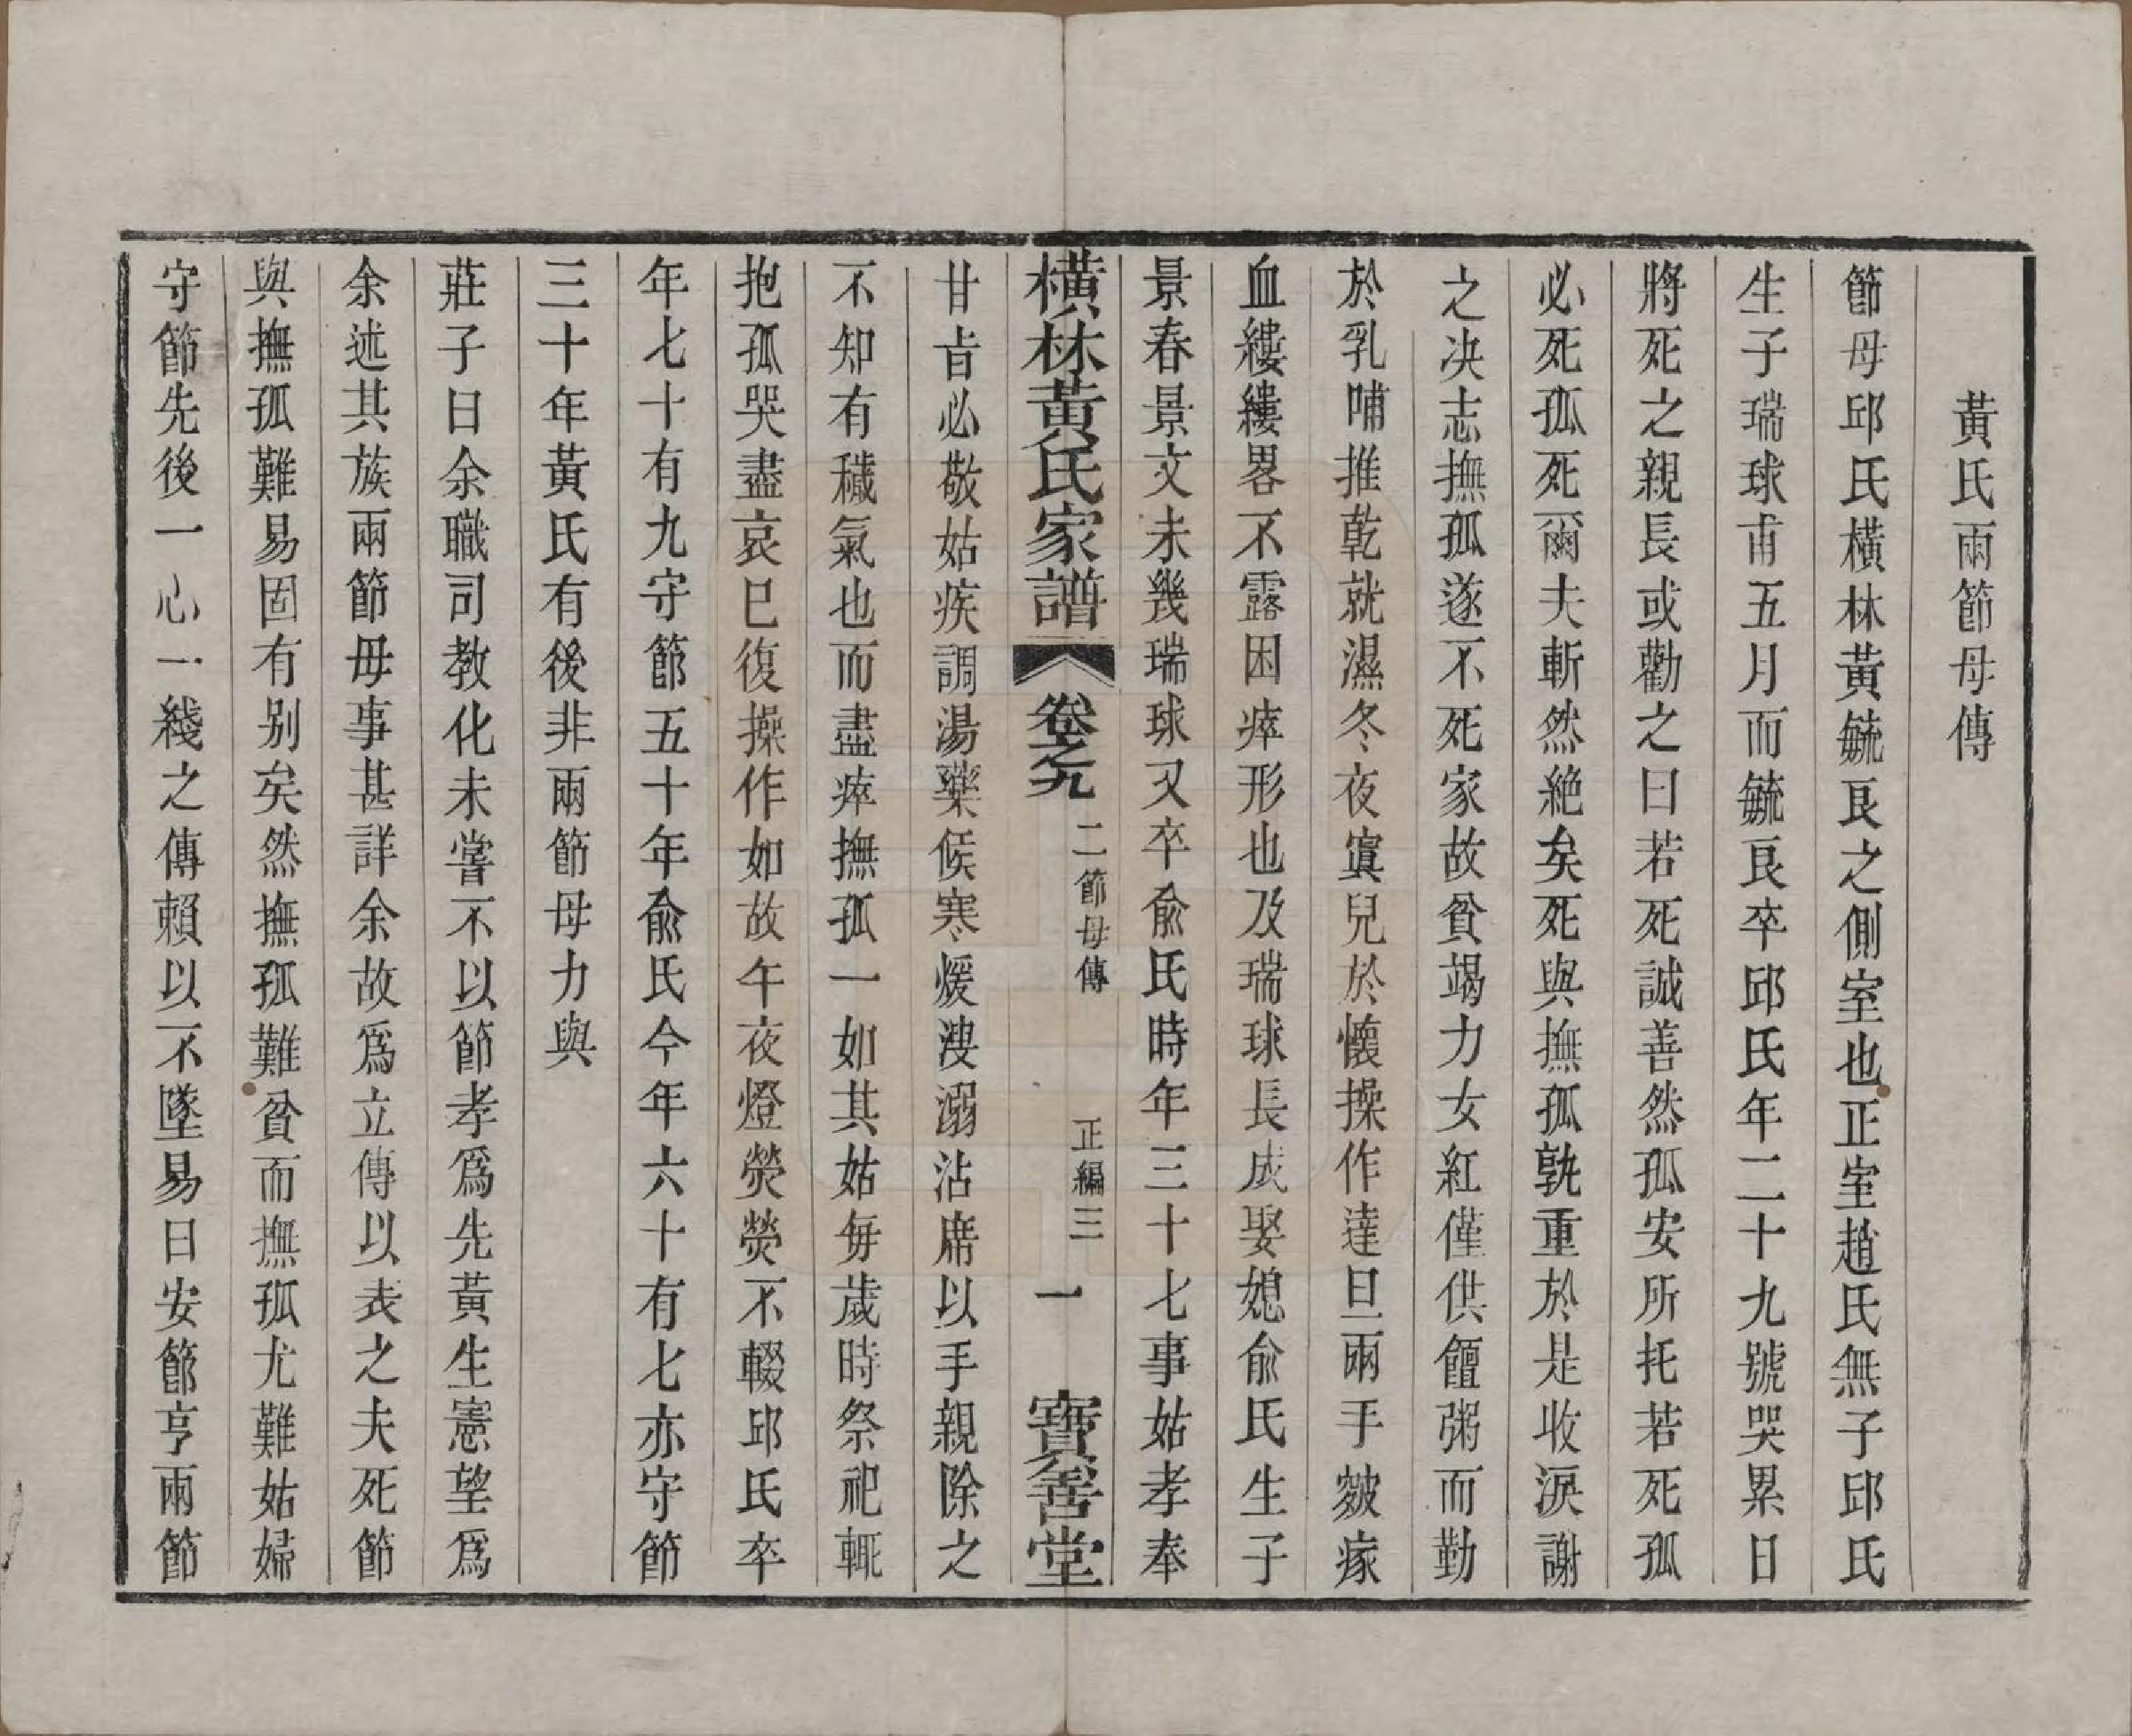 黃氏兩節母傳
節母邱氏橫林黃毓良之側室也正室趙氏無子邱氏
生子瑞球甫五月而毓良卒邱氏年二十九號哭累日
將死之親長或勸之曰若死誠善然孤安所托若死孤
必死孤死爾夫斬然絶矣死與撫孤孰重於是收淚謝
之决志撫孤遂不死家故貧竭力女紅僅供饘粥而勤
於乳哺推乾就濕冬夜寘兒於懷操作達旦兩手皸瘃
血縷縷畧不露困瘁形也及瑞球長成娶媳俞氏生子
景春景文未幾瑞球又卒俞氏時年三十七事姑孝奉
橫林黃氏家譜 卷之九 二節母傳 正編三 一 寶善堂
甘旨必敬姑疾調湯藥候寒煖溲溺沾席以手親除之
不知有穢氣也而盡瘁撫孤一如其姑每歲時祭祀輒
抱孤哭盡哀已復操作如故午夜燈熒熒不輟邱氏卒
年七十有九守節五十年俞氏今年六十有七亦守節
三十年黃氏有後非兩節母力與
莊子曰余職司教化未嘗不以節孝爲先黃生憲望爲
余述其族兩節毋事甚詳余故爲立傳以表之夫死節
與撫孤難易固有别矣然撫孤難貧而撫孤尤難姑婦
守節先後一心一綫之傳賴以不墜易曰安節亨兩節